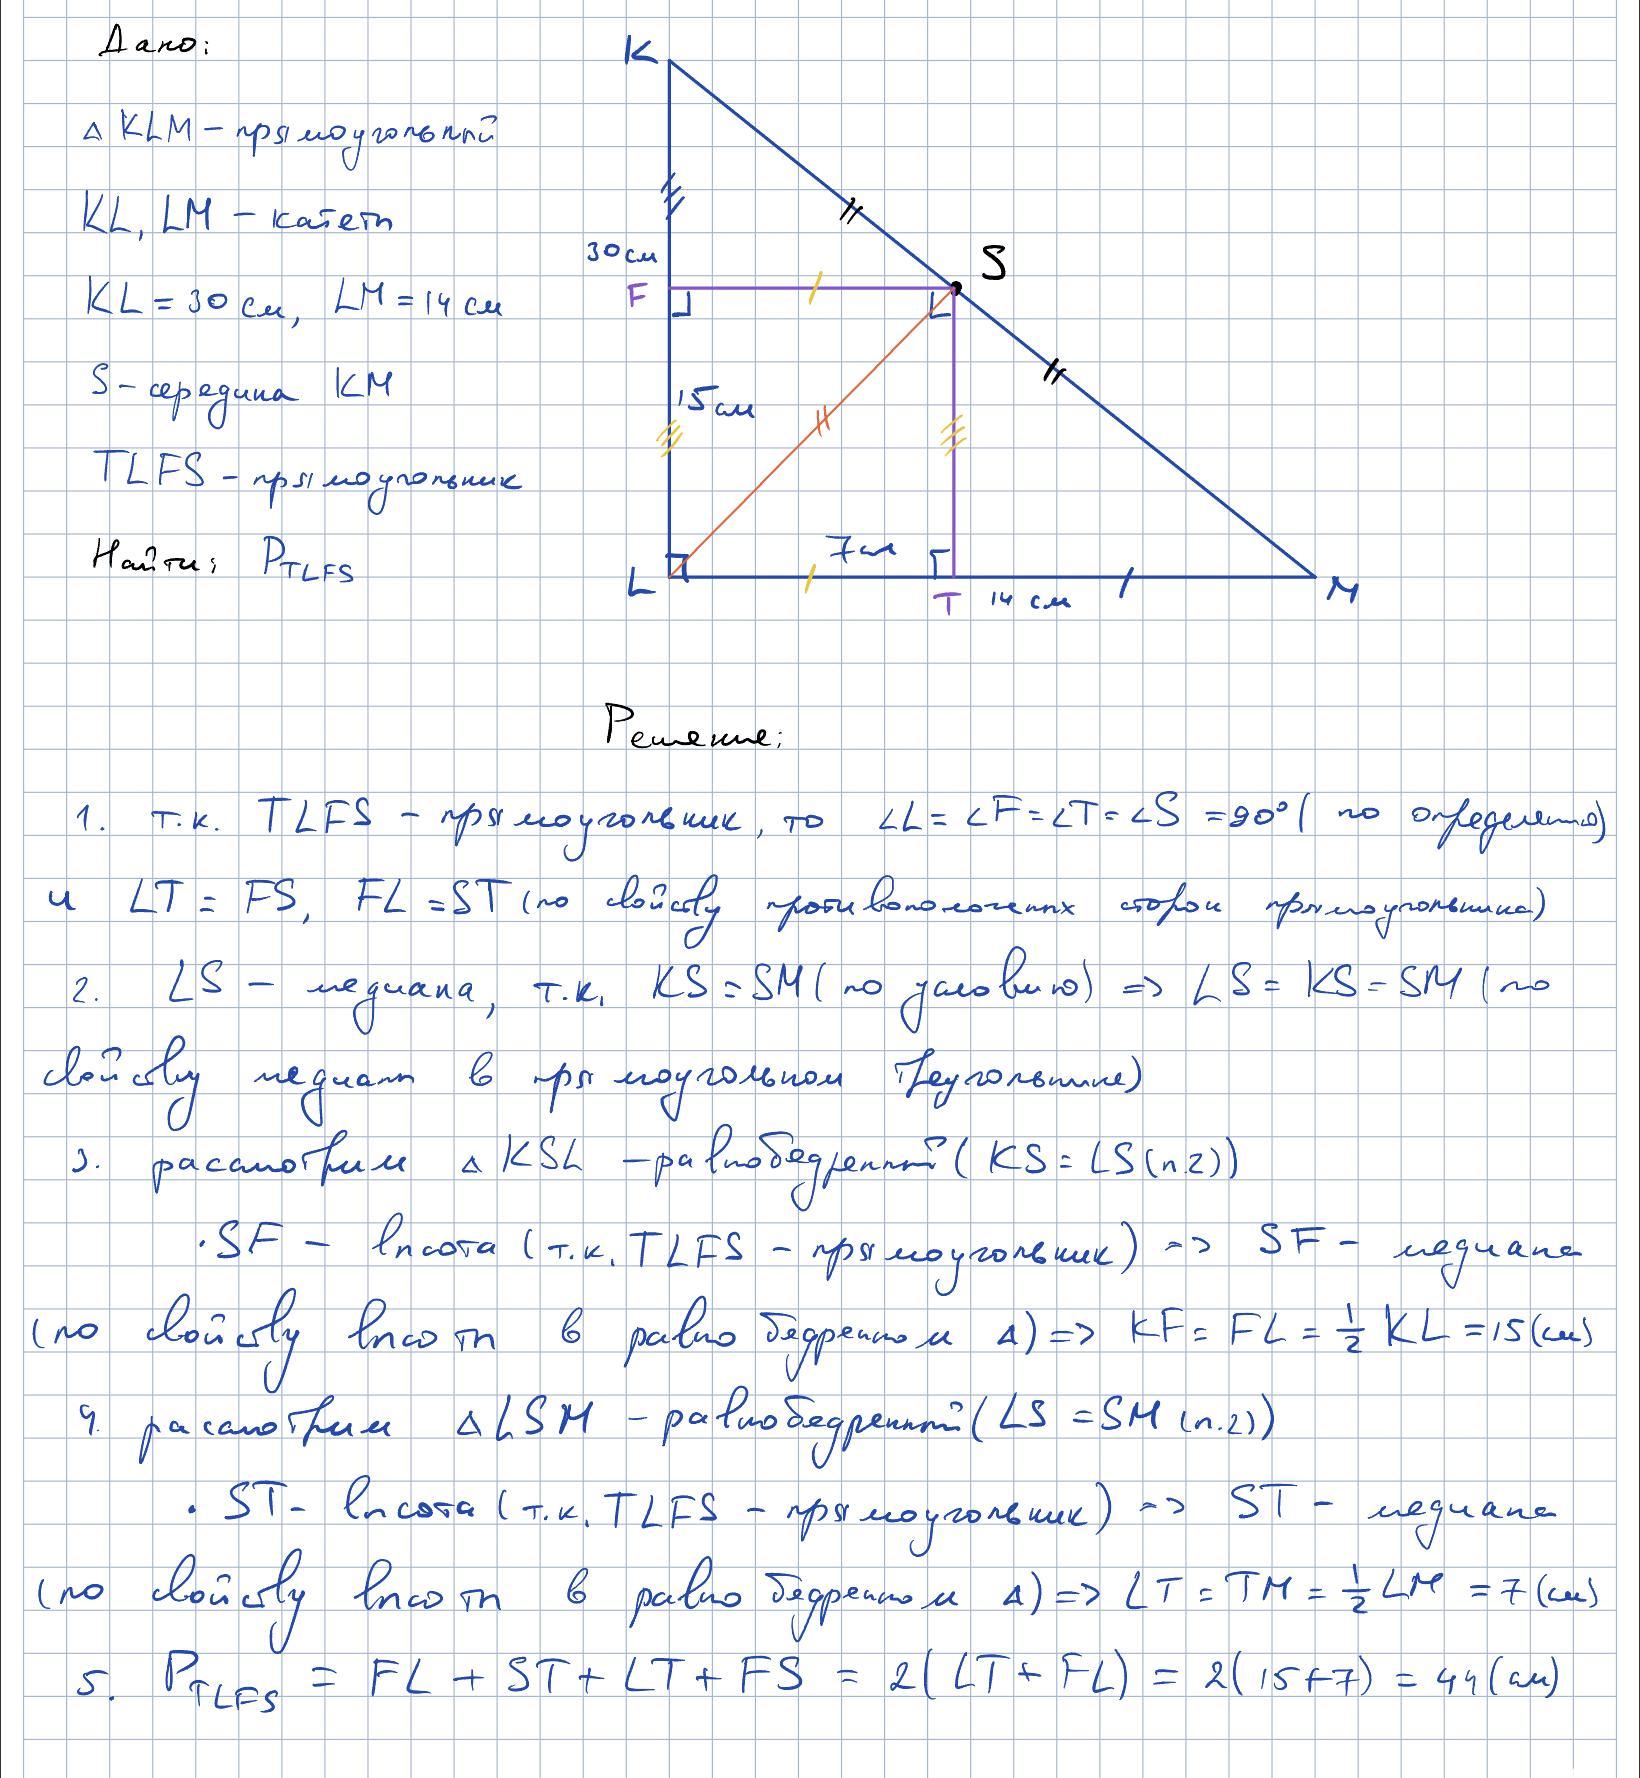 Дано:
△ KLM – прямоугольный
KL, LM – катеты
KL = 30 см, LM = 14 см
S – середина KM
TLFS – прямоугольник
Найти: P_TLFS
K
30 см
S
F
15 см
7 см
L
T
14 см
M
Решение:
1. т.к. TLFS – прямоугольник, то ∠L = ∠F = ∠T = ∠S = 90° ( по определению)
и LT = FS, FL = ST (по свойству противоположных сторон прямоугольника)
2. LS – медиана, т.к. KS = SM ( по условию) => LS = KS = SM ( по
свойству медианы в прямоугольном треугольнике)
3. рассмотрим △ KSL – равнобедренный ( KS = LS (п.2))
· SF – высота ( т.к. TLFS – прямоугольник) => SF – медиана
(по свойству высоты в равнобедренном △) => KF = FL = 1/2 KL = 15 (см)
4. рассмотрим △ LSM – равнобедренный ( LS = SM (п.2))
· ST – высота ( т.к. TLFS – прямоугольник) => ST – медиана
(по свойству высоты в равнобедренном △) => LT = TM = 1/2 LM = 7 (см)
5. P_TLFS = FL + ST + LT + FS = 2( LT + FL) = 2( 15 + 7) = 44 (см)